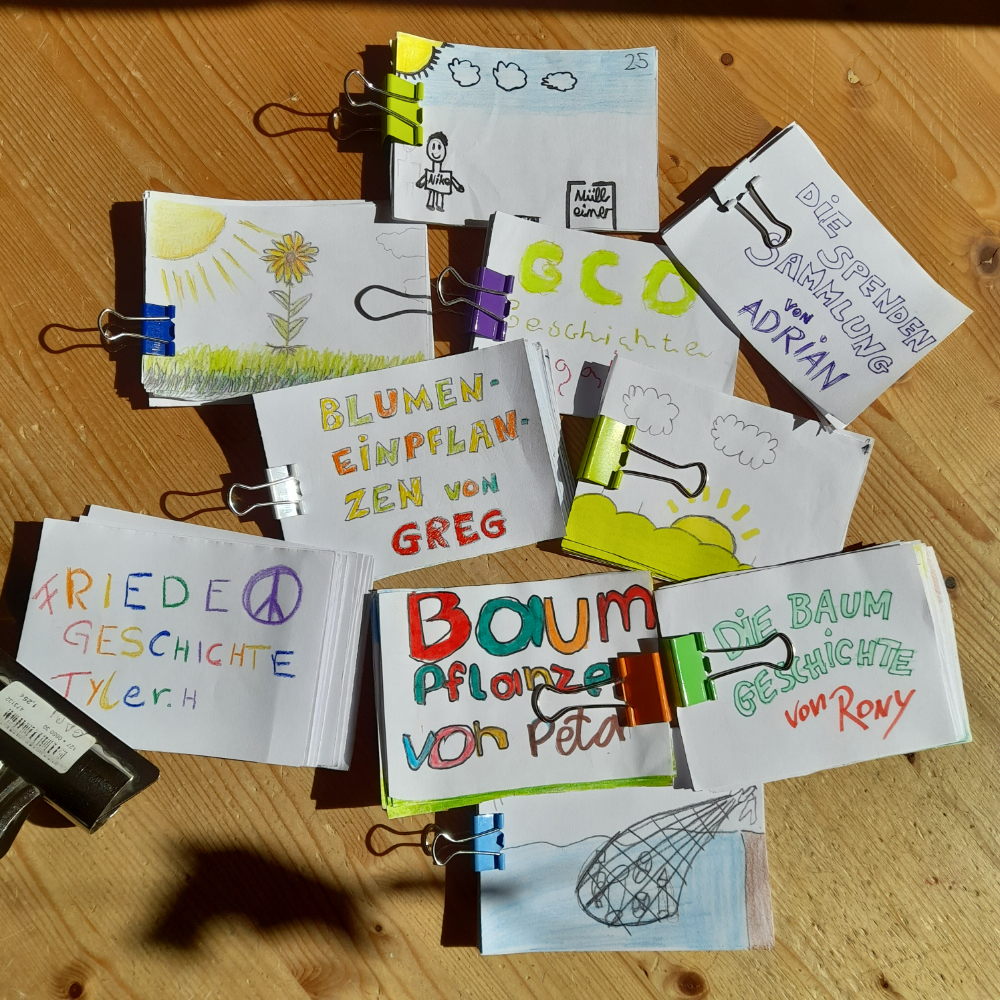 25
Nike
Müll
eimer
DIE
SPENDEN
SAMMLUNG
von
ADRiAN
ECO
Geschichten
BLUMEN-
EiNPFLAN-
ZEN von
GREG
FRIEDE
GESCHICHTE
Tyler.H
Baum
Pflanze
von Peta
DiE BAUM
GESCHiCHTE
von RONY